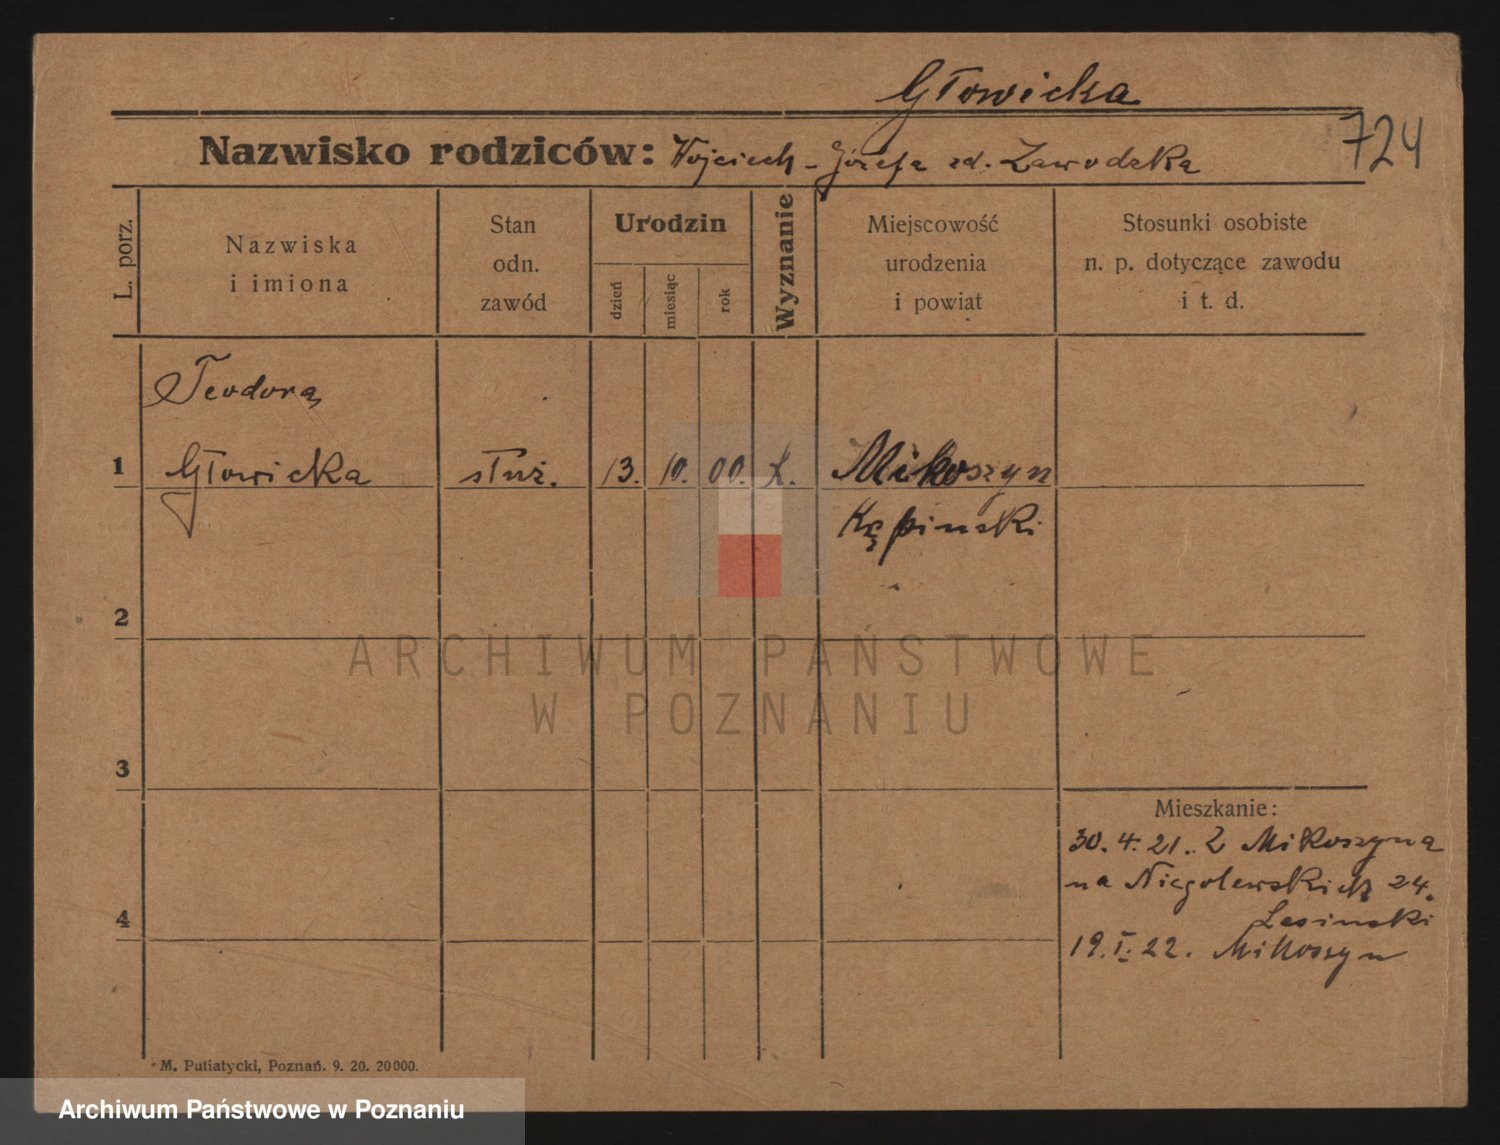 Głowicka
724
Nazwisko rodziców: Wojciech - Józefa zd. Zawodzka
L. porz.
Nazwiska
i imiona
Stan
odn.
zawód
Urodzin
dzień
miesiąc
rok
Wyznanie
Miejscowość
urodzenia
i powiat
Stosunki osobiste
n. p. dotyczące zawodu
i t. d.
Teodora
1 Głowicka służ. 13. 10. 00. k. Mikoszyn
Kępinski
2
3
4
Mieszkanie:
30. 4. 21. Z Mikoszyna
na Niegolewskich 24.
Lesinski
19. I. 22. Mikoszyn
M. Putiatycki, Poznań. 9. 20. 20000.
ARCHIWUM PAŃSTWOWE
W POZNANIU
Archiwum Państwowe w Poznaniu